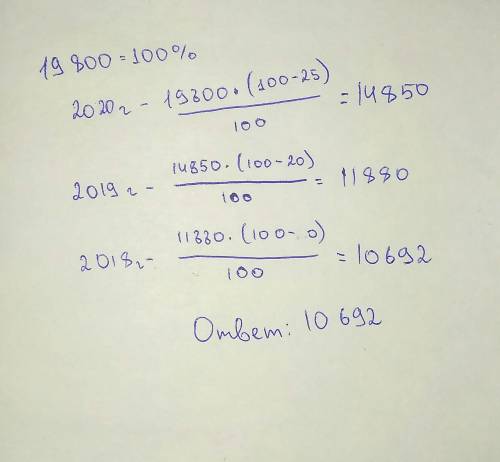 19 800 = 100%
2020 г - 19800 · (100-25) / 100 = 14850
2019 г - 14850 · (100-20) / 100 = 11880
2018 г - 11880 · (100- 0) / 100 = 10692
Ответ: 10 692